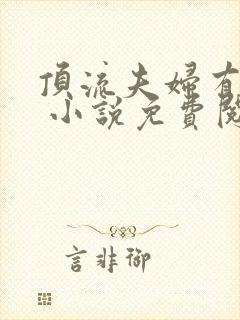 頂流夫婦有
小說免費閱
言非御